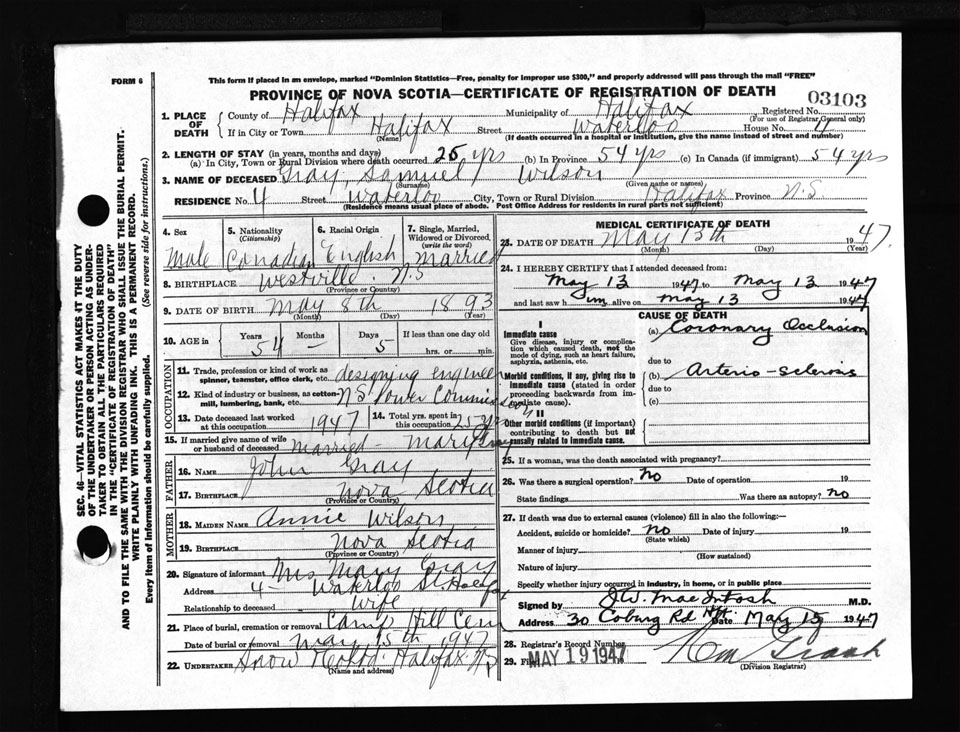 This form if placed in an envelope, marked "Dominion Statistics—Free, penalty for improper use $300," and properly addressed will pass through the mail "FREE"
FORM 6
PROVINCE OF NOVA SCOTIA—CERTIFICATE OF REGISTRATION OF DEATH
03103
1. PLACE OF DEATH
County of Halifax Municipality of Halifax Registered No.
(For use of Registrar General only)
If in City or Town Halifax Street Waterloo House No. 4
(Name) (If death occurred in a hospital or institution, give the name instead of street and number)
2. LENGTH OF STAY (in years, months and days)
(a) In City, Town or Rural Division where death occurred 25 yrs (b) In Province 54 yrs (c) In Canada (if immigrant) 54 yrs
3. NAME OF DECEASED Gray, Samuel Wilson
(Surname) (Given name or names)
RESIDENCE No. 4 Street Waterloo City, Town or Rural Division Halifax Province N.S
(Residence means usual place of abode. Post Office Address for residents in rural parts not sufficient)
4. Sex
Male
5. Nationality
(Citizenship)
Canadian
6. Racial Origin
English
7. Single, Married, Widowed or Divorced
(write the word)
Married
8. BIRTHPLACE Westville N.S
(Province or Country)
9. DATE OF BIRTH May 8th 1893
(Month) (Day) (Year)
10. AGE in Years 54 Months – Days 5 If less than one day old
hrs. or min.
OCCUPATION
11. Trade, profession or kind of work as spinner, teamster, office clerk, etc. designing engineer
12. Kind of industry or business, as cotton-mill, lumbering, bank, etc. N S Power Commission
13. Date deceased last worked at this occupation 1947
14. Total yrs. spent in this occupation 25 yrs
15. If married give name of wife or husband of deceased Married – Mary Gray
FATHER
16. NAME John Gray
17. BIRTHPLACE Nova Scotia
(Province or Country)
MOTHER
18. MAIDEN NAME Annie Wilson
19. BIRTHPLACE Nova Scotia
(Province or Country)
20. Signature of informant Mrs Mary Gray
Address 4 – Waterloo St. Halifax
Relationship to deceased Wife
21. Place of burial, cremation or removal Camp Hill Cem
Date of burial or removal May 15th 1947
22. UNDERTAKER Snow & Co Ltd. Halifax NS
(Name and address)
MEDICAL CERTIFICATE OF DEATH
23. DATE OF DEATH May 13th 1947.
(Month) (Day) (Year)
24. I HEREBY CERTIFY that I attended deceased from:
May 13 1947 to May 13 1947
and last saw him alive on May 13 1947
CAUSE OF DEATH
I
Immediate cause
Give disease, injury or complication which caused death, not the mode of dying, such as heart failure, asphyxia, asthenia, etc.
(a) Coronary Occlusion
due to
Morbid conditions, if any, giving rise to immediate cause (stated in order proceeding backwards from immediate cause).
(b) Arterio-sclerosis
due to
(c)
II
Other morbid conditions (if important) contributing to death but not causally related to immediate cause.
25. If a woman, was the death associated with pregnancy?
26. Was there a surgical operation? No Date of operation 19
State findings Was there autopsy? No
27. If death was due to external causes (violence) fill in also the following:—
Accident, suicide or homicide? No Date of injury 19
(State which)
Manner of injury
(How sustained)
Nature of injury
Specify whether injury occurred in industry, in home, or in public place
Signed by J.W. MacIntosh M.D.
Address 30 Coburg Rd Hfx. Date May 15 1947
28. Registrar's Record Number
29. Filed MAY 19 1947
(Division Registrar)
SEC. 46—VITAL STATISTICS ACT MAKES IT THE DUTY
OF THE UNDERTAKER OR PERSON ACTING AS UNDER-
TAKER TO OBTAIN ALL THE PARTICULARS REQUIRED
IN THE "CERTIFICATE OF REGISTRATION OF DEATH"
AND TO FILE THE SAME WITH THE DIVISION REGISTRAR WHO SHALL ISSUE THE BURIAL PERMIT.
WRITE PLAINLY WITH UNFADING INK. THIS IS A PERMANENT RECORD.
Every item of information should be carefully supplied. (See reverse side for instructions.)